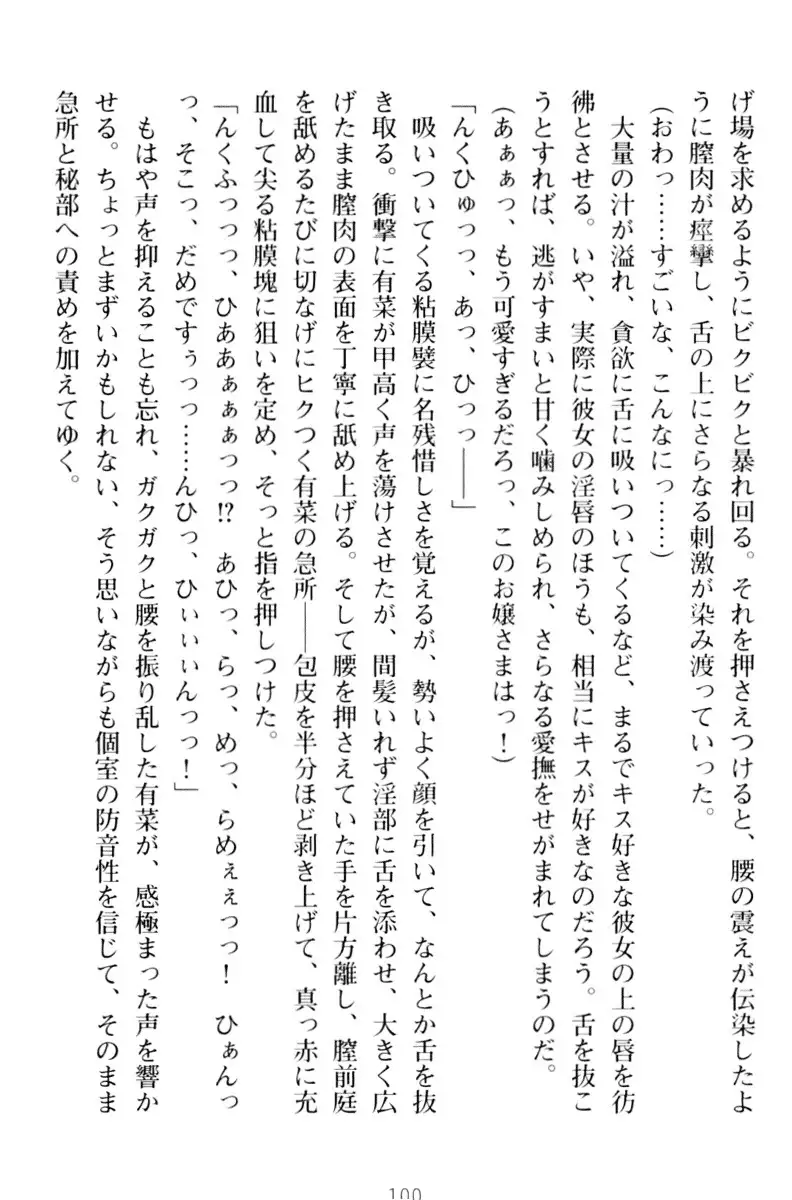 げ場を求めるようにビクビクと暴れ回る。それを押さえつけると、腰の震えが伝染したよ
うに膣肉が痙攣し、舌の上にさらなる刺激が染み渡っていった。
(おわっ……すごいな、こんなにっ……)
　大量の汁が溢れ、貪欲に舌に吸いついてくるなど、まるでキス好きな彼女の上の唇を彷
彿とさせる。いや、実際に彼女の淫唇のほうも、相当にキスが好きなのだろう。舌を抜こ
うとすれば、逃がすまいと甘く噛みしめられ、さらなる愛撫をせがまれてしまうのだ。
(あぁぁっ、もう可愛すぎるだろっ、このお嬢さまはっ！)
「んくひゅっっ、あっ、ひっっ――」
　吸いついてくる粘膜襞に名残惜しさを覚えるが、勢いよく顔を引いて、なんとか舌を抜
き取る。衝撃に有菜が甲高く声を蕩けさせたが、間髪いれず淫部に舌を添わせ、大きく広
げたまま膣肉の表面を丁寧に舐め上げる。そして腰を押さえていた手を片方離し、膣前庭
を舐めるたびに切なげにヒクつく有菜の急所――包皮を半分ほど剥き上げて、真っ赤に充
血して尖る粘膜塊に狙いを定め、そっと指を押しつけた。
「んくふっっっ、ひああぁぁぁっっ!?　あひっ、らっ、めっ、らめぇぇっっ！　ひぁんっ
っ、そこっ、だめですぅっっ……んひっ、ひぃぃぃんっっ！」
　もはや声を抑えることも忘れ、ガクガクと腰を振り乱した有菜が、感極まった声を響か
せる。ちょっとまずいかもしれない、そう思いながらも個室の防音性を信じて、そのまま
急所と秘部への責めを加えてゆく。
100